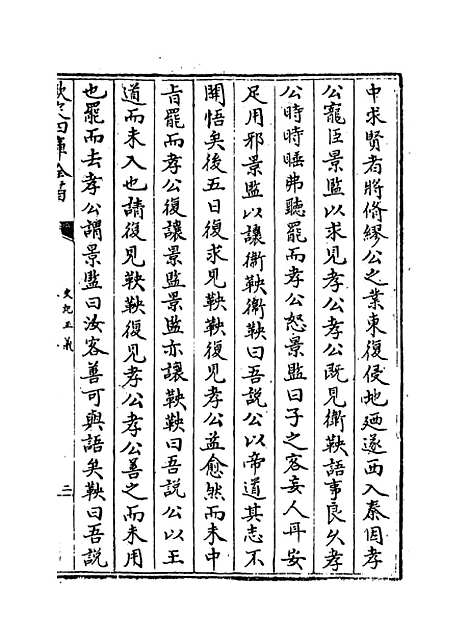 中求賢者將脩繆公之業東復侵地廼遂西入秦因孝
公寵臣景監以求見孝公孝公既見衛鞅語事良久孝
公時時睡弗聽罷而孝公怒景監曰子之客妄人耳安
足用邪景監以讓衛鞅衛鞅曰吾說公以帝道其志不
開悟矣後五日復求見鞅鞅復見孝公益愈然而未中
旨罷而孝公復讓景監景監亦讓鞅鞅曰吾說公以王
道而未入也請復見鞅鞅復見孝公孝公善之而未用
也罷而去孝公謂景監曰汝客善可與語矣鞅曰吾說
欽定四庫全書
史記正義
二